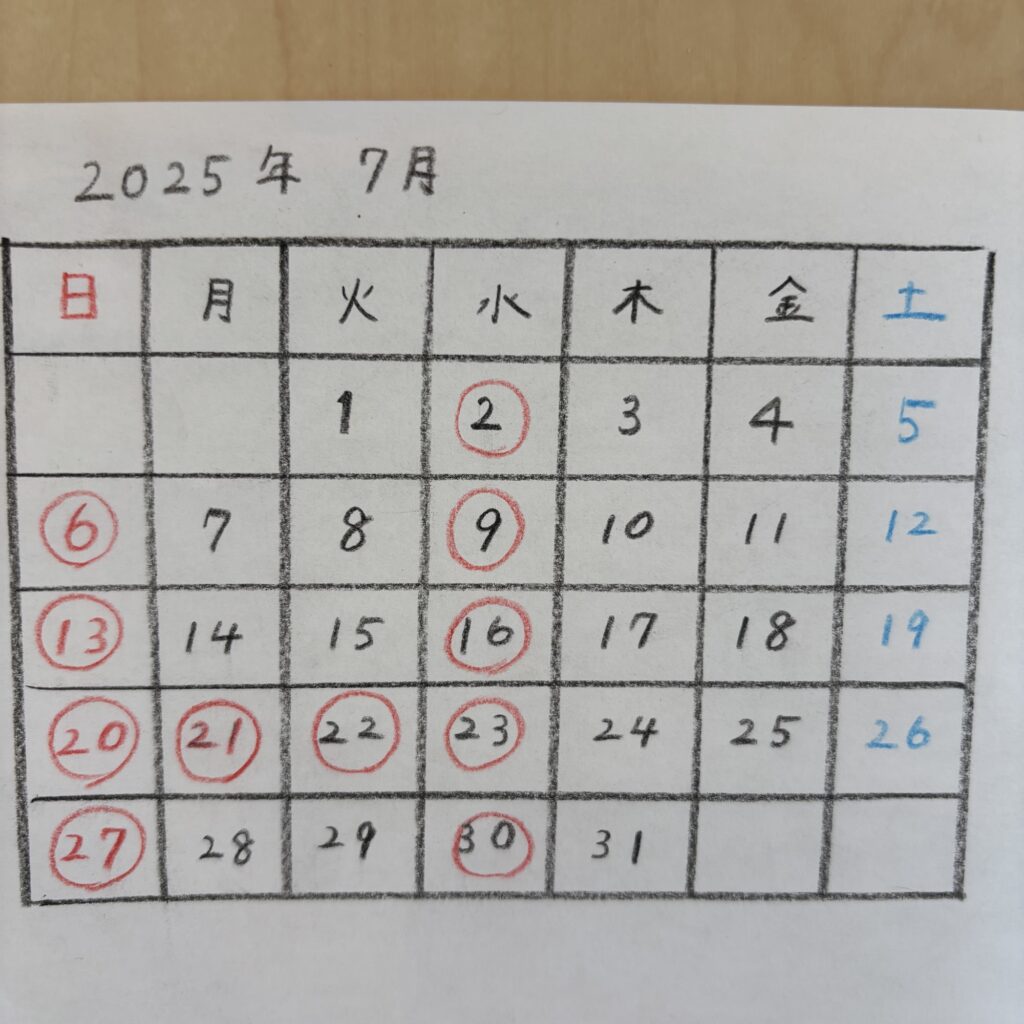 2025年 7月
日 月 火 水 木 金 土
1 2 3 4 5
6 7 8 9 10 11 12
13 14 15 16 17 18 19
20 21 22 23 24 25 26
27 28 29 30 31